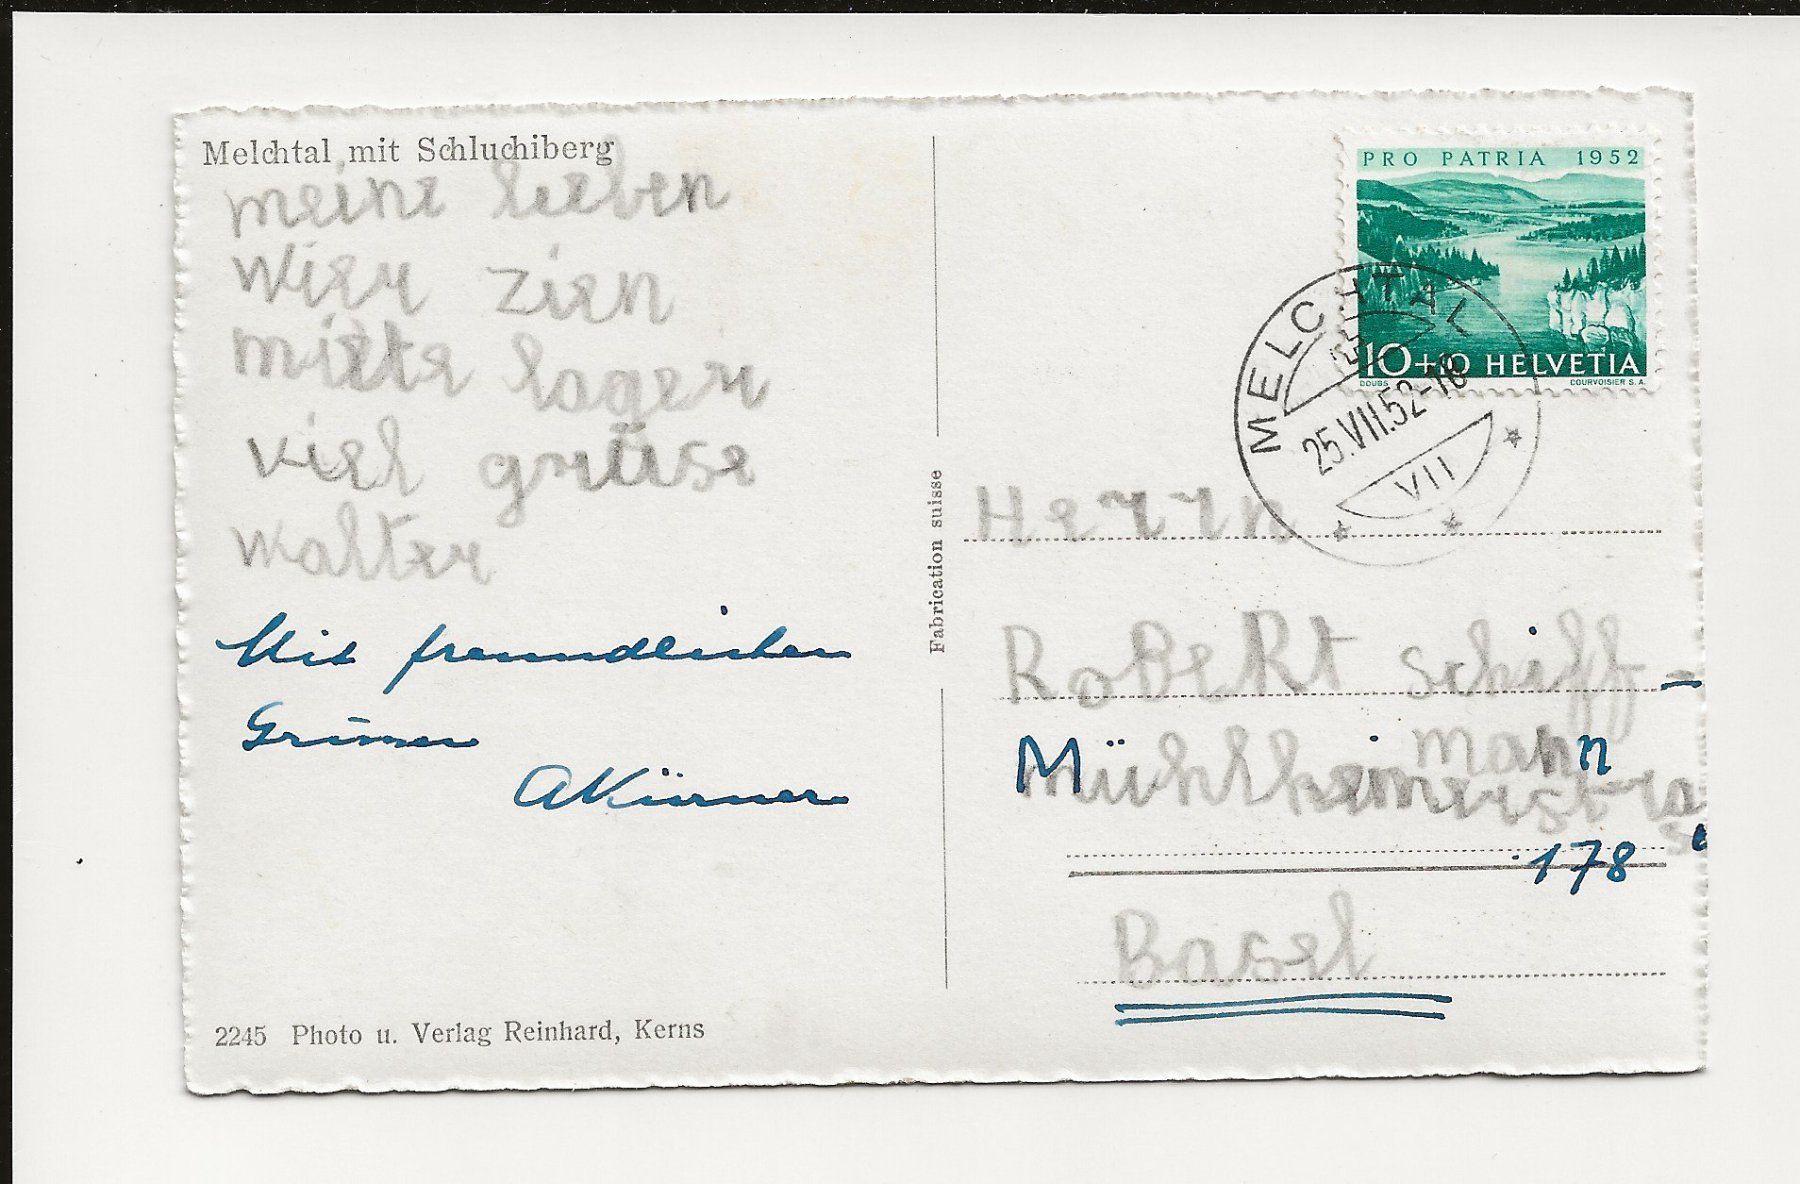 Melchtal mit Schluchiberg
meine lieben
wier zien
miste lager
viel grüse
walter
Mit freundlichen
Grüssen
Fabrication suisse
PRO PATRIA 1952
10+10 HELVETIA
DOUBS COURVOISIER S.A.
MELCHTAL
25.VII.52-18
VII
Herrn
RoBeRt schiff-
mann
Mühlheimerstras
se
178
Basel
2245 Photo u. Verlag Reinhard, Kerns